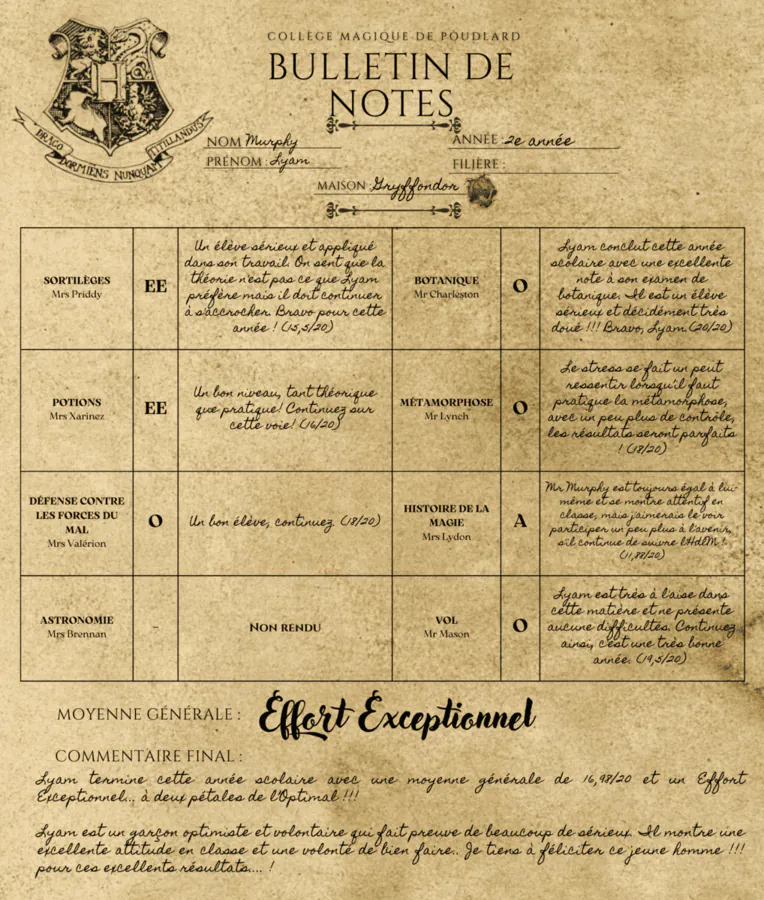 COLLÈGE MAGIQUE DE POUDLARD
BULLETIN DE
NOTES
DRACO DORMIENS NUNQUAM TITILLANDUS
NOM Murphy
ANNÉE : 2e année
PRÉNOM : Lyam
FILIÈRE :
MAISON : Gryffondor
SORTILÈGES
Mrs Priddy
EE
Un élève sérieux et appliqué
dans son travail. On sent que la
théorie n'est pas ce que Lyam
préfère mais il doit continuer
à s'accrocher. Bravo pour cette
année ! (15,5/20)
BOTANIQUE
Mr Charleston
O
Lyam conclut cette année
scolaire avec une excellente
note à son examen de
botanique. Il est un élève
sérieux et décidément très
doué !!! Bravo, Lyam. (20/20)
POTIONS
Mrs Xarinez
EE
Un bon niveau, tant théorique
que pratique! Continuez sur
cette voie! (16/20)
MÉTAMORPHOSE
Mr Lynch
O
Le stress se fait un peut
ressentir lorsqu'il faut
pratique la métamorphose,
avec un peu plus de contrôle,
les résultats seront parfaits
! (18/20)
DÉFENSE CONTRE
LES FORCES DU
MAL
Mrs Valérion
O
Un bon élève, continuez (18/20)
HISTOIRE DE LA
MAGIE
Mrs Lydon
A
Mr Murphy est toujours égal à lui-
même et se montre attentif en
classe, mais j'aimerais le voir
participer un peu plus à l'avenir,
s'il continue de suivre l'HdlM !
(11,88/20)
ASTRONOMIE
Mrs Brennan
-
NON RENDU
VOL
Mr Mason
O
Lyam est très à l'aise dans
cette matière et ne présente
aucune difficultés. Continuez
ainsi, c'est une très bonne
année. (19,5/20)
MOYENNE GÉNÉRALE : Effort Exceptionnel
COMMENTAIRE FINAL :
Lyam termine cette année scolaire avec une moyenne générale de 16,98/20 et un Effort
Exceptionnel... à deux pétales de l'Optimal !!!
Lyam est un garçon optimiste et volontaire qui fait preuve de beaucoup de sérieux. Il montre une
excellente attitude en classe et une volonté de bien faire.. Je tiens à féliciter ce jeune homme !!!
pour ces excellents résultats.... !